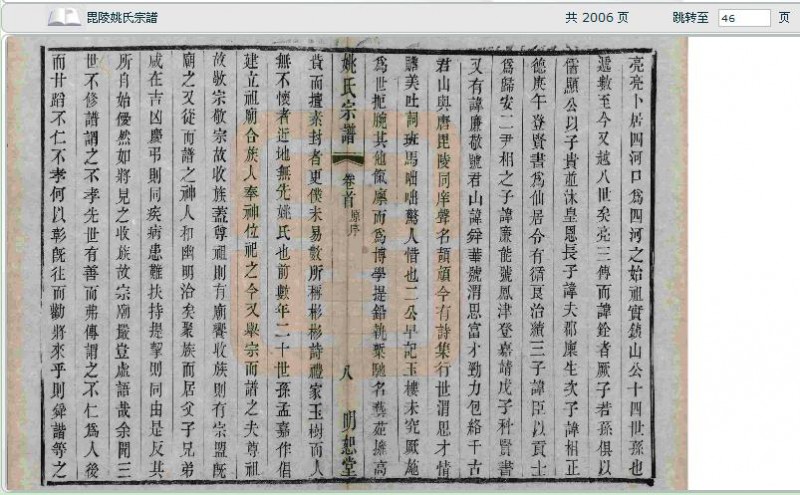 毘陵姚氏宗譜
共 2006 页
跳转至 46 页
亮亮卜居四河口爲四河之始祖實鎮山公十四世孫也
遞數至今又越八世矣亮三傳而諱銓者厥子若孫俱以
儒顯公以子貴並沐皇恩長子諱夫郡廪生次子諱相正
德庚午登賢書爲仙居令有循良治績三子諱臣以貢士
爲歸安二尹相之子諱廉能號鳳津登嘉靖戊子科賢書
又有諱廉敬號君山諱舜華號渭思富才勁力包絡千古
君山與唐毘陵同庠聲名頡頏今有詩集行世渭思才情
讌美吐詞班馬咄咄驚人惜也二公早記玉樓未究厥施
爲世扼腕其他儒廪而爲博學提鉛槧馳名藝苑擅高
貲而擅素封者更僕未易數所稱彬彬詩禮家玉樹而人
無不懷者近地無先姚氏也前數年二十世孫孟嘉作倡
建立祖廟合族人奉神位祀之今又舉宗而譜之夫尊祖
故敬宗敬宗故收族蓋尊祖則有廟饗收族則有宗盟旣
廟之又從而譜之神人和幽明治矣聚族而居父子兄弟
咸在吉凶慶弔則同疾病患難扶持提挈則同由是反其
所自始優然如將見之收族故宗廟嚴豈虛語哉余聞三
世不修譜謂之不孝先世有善而弗傳謂之不仁爲人後
而甘蹈不仁不孝何以彰旣往而勸將來乎則舜諧等之
姚氏宗譜 卷首 原序 八 明恕堂